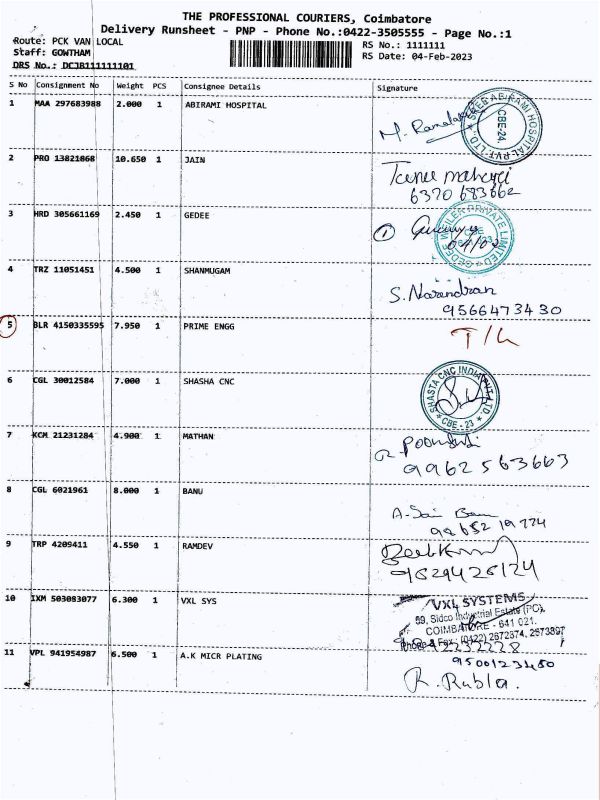 THE PROFESSIONAL COURIERS, Coimbatore
Delivery Runsheet - PNP - Phone No.:0422-3505555 - Page No.:1
Route: PCK VAN LOCAL
RS No.: 1111111
Staff: GOWTHAM
RS Date: 04-Feb-2023
DRS No.: DCJB111111101
S No Consignment No Weight PCS Consignee Details Signature
1 MAA 297683988 2.000 1 ABIRAMI HOSPITAL
CBE-24.
2 PRO 13821868 10.650 1 JAIN
6370 683662
3 HRD 305661169 2.450 1 GEDEE
GEDEE WEILER PRIVATE LIMITED
4 TRZ 11051451 4.500 1 SHANMUGAM
S. Narendran
9566473430
5 BLR 4150335595 7.950 1 PRIME ENGG
6 CGL 30012584 7.000 1 SHASHA CNC
SHASTA CNC INDIA PVT. LTD.
CBE - 23
7 KCM 21231284 4.900 1 MATHAN
9962563663
8 CGL 6021961 8.000 1 BANU
9 TRP 4209411 4.550 1 RAMDEV
10 IXM 503083077 6.300 1 VXL SYS
VXL SYSTEMS
59, Sidco Industrial Estate (PC),
COIMBATORE - 641 021.
Phone & Fax: (0422) 2672374, 2673897
11 VPL 941954987 6.500 1 A.K MICR PLATING
9500123480